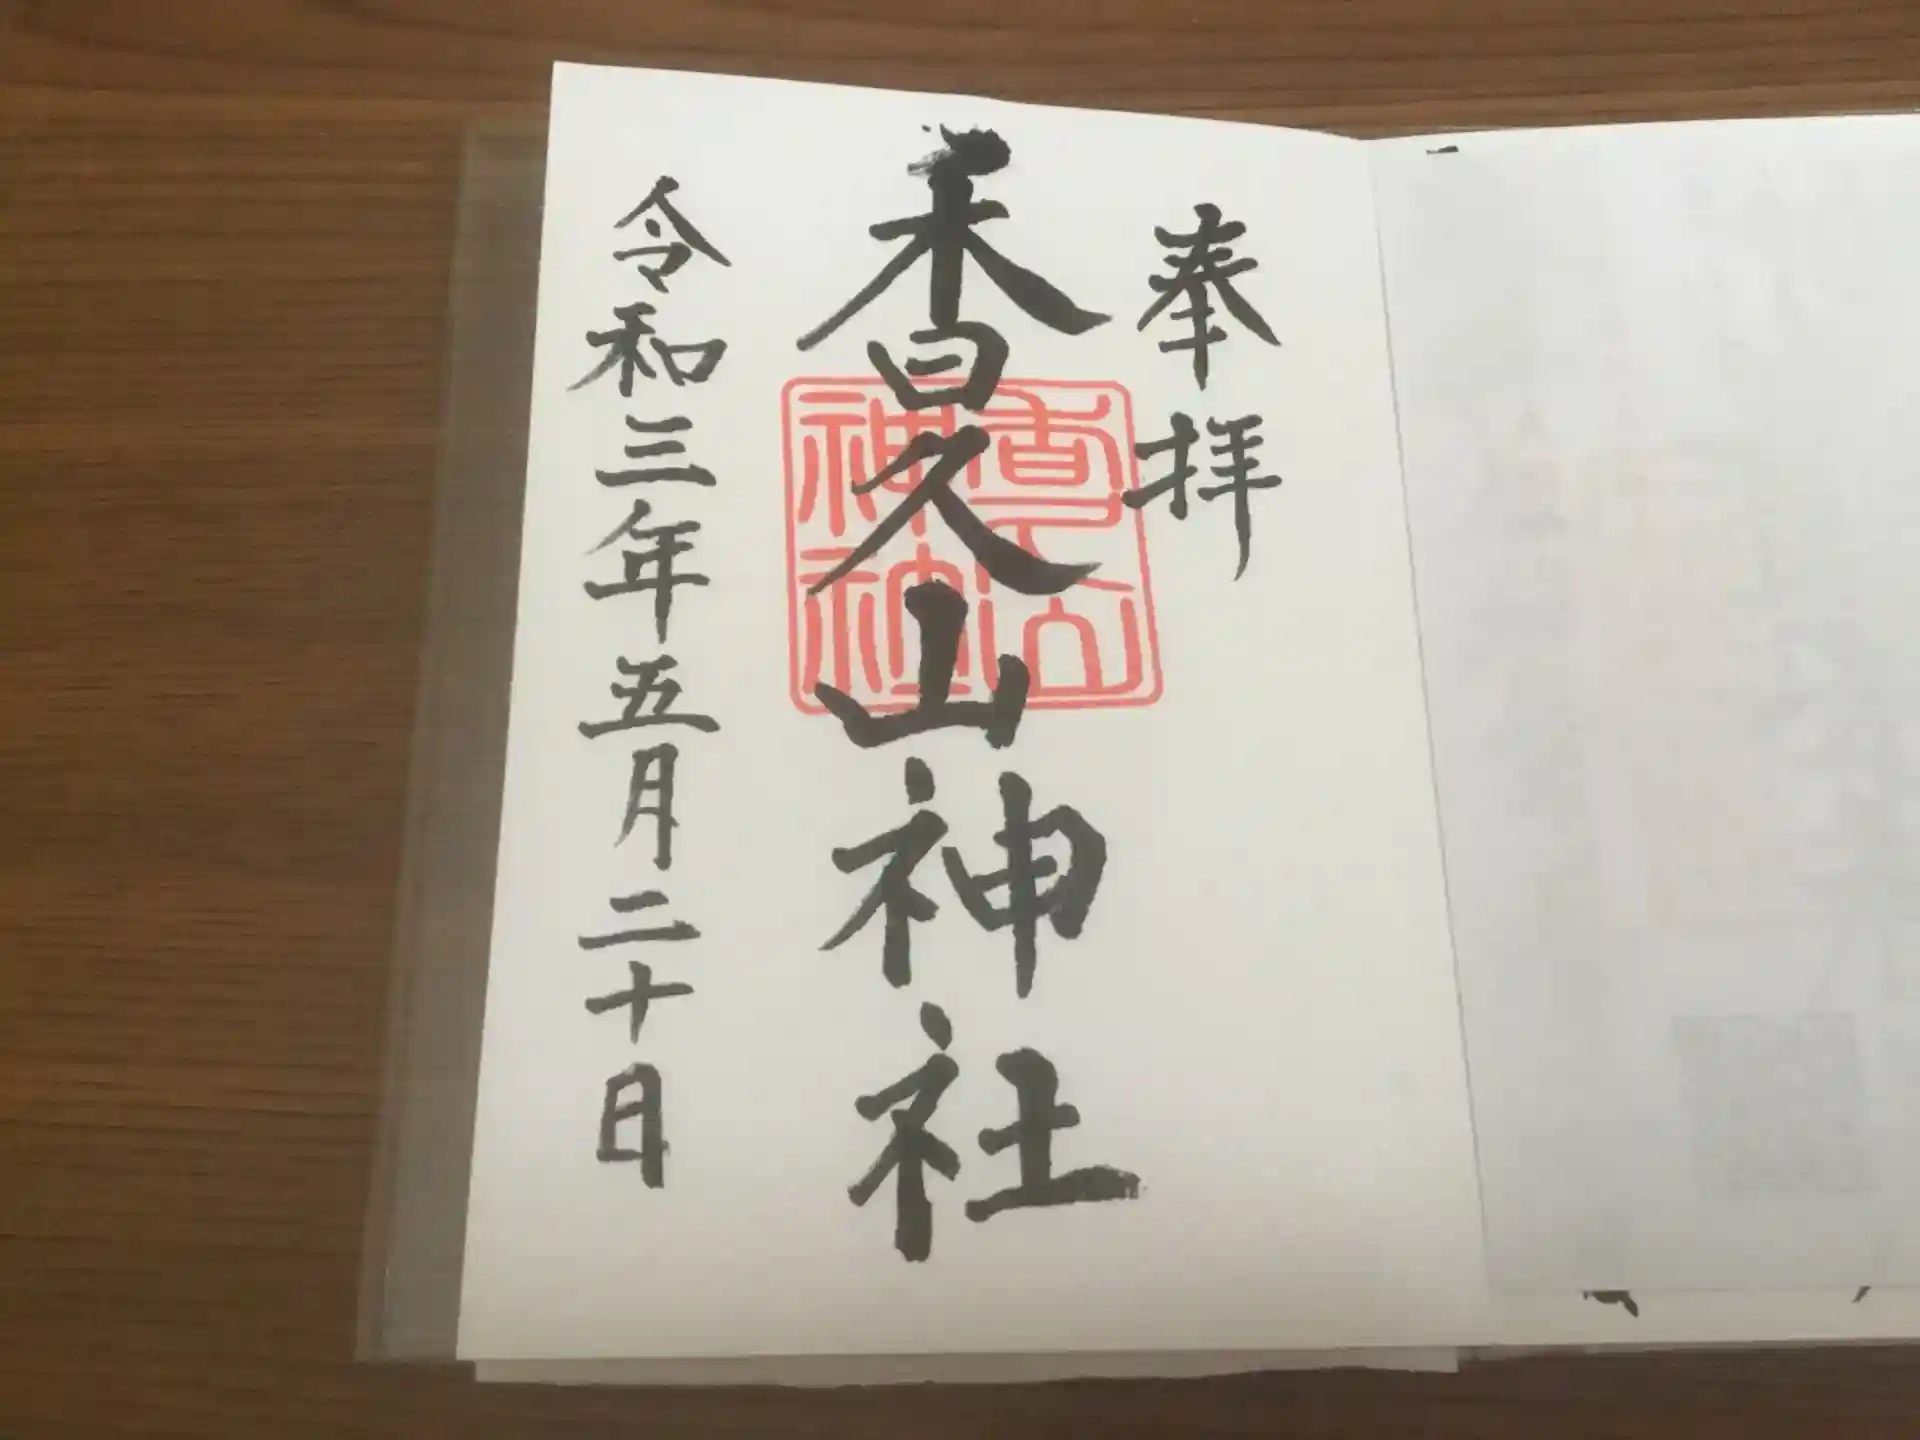 奉拝
香久山神社
香久山
神社
令和三年五月二十日